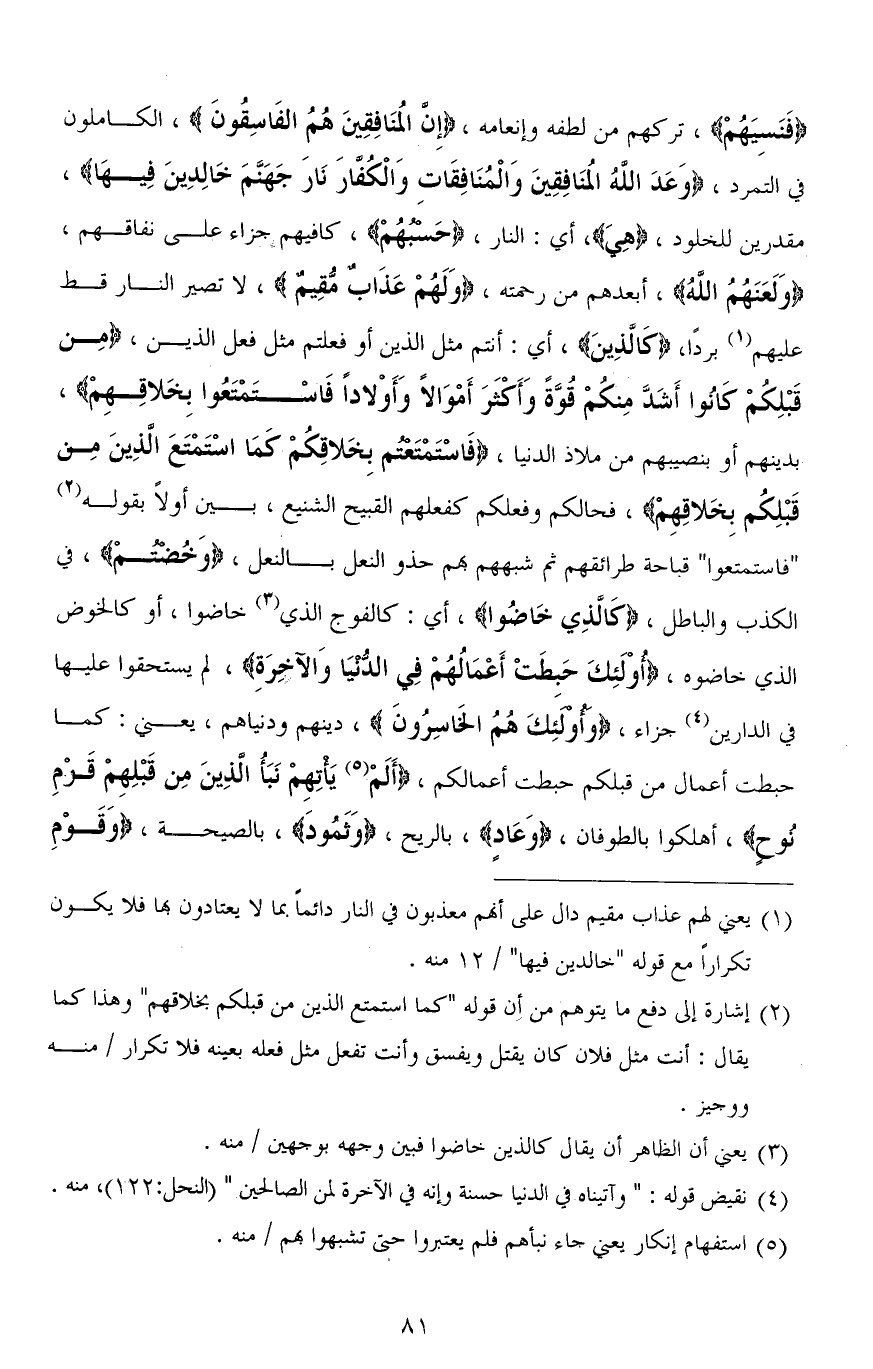 ﴿فَنَسِيَهُمْ﴾ ، تركهم من لطفه وإنعامه ، ﴿إِنَّ الْمُنَافِقِينَ هُمُ الفَاسِقُونَ ﴾ ، الكـــاملون
في التمرد ، ﴿وَعَدَ اللَّهُ الْمُنَافِقِينَ وَالْمُنَافِقَاتِ وَالْكُفَّارَ نَارَ جَهَنَّمَ خَالِدِينَ فِيـــهَا﴾ ،
مقدرين للخلود ، ﴿هِيَ﴾، أي : النار ، ﴿حَسْبُهُمْ﴾ ، كافيهم جزاء علـــى نفاقـــهم ،
﴿وَلَعَنَهُمُ اللَّهُ﴾ ، أبعدهم من رحمته ، ﴿وَلَهُمْ عَذَابٌ مُّقِيمٌ ﴾ ، لا تصير النـــار قـــط
عليهم(١) بردًا، ﴿كَالَّذِينَ﴾ ، أي : أنتم مثل الذين أو فعلتم مثل فعل الذيـــن ، ﴿مِـــن
قَبْلِكُمْ كَانُوا أَشَدَّ مِنكُمْ قُوَّةً وَأَكْثَرَ أَمْوَالاً وَأَوْلاداً فَاسْـــتَمْتَعُوا بِخَلاقِـــهِمْ﴾ ،
بدينهم أو بنصيبهم من ملاذ الدنيا ، ﴿فَاسْتَمْتَعْتُم بِخَلاقِكُمْ كَمَا اسْتَمْتَعَ الَّذِينَ مِـــن
قَبْلِكُم بِخَلاقِهِمْ﴾ ، فحالكم وفعلكم كفعلهم القبيح الشنيع ، بـــين أولاً بقولـــه(٢)
"فاستمتعوا" قباحة طرائقهم ثم شبههم بهم حذو النعل بـــالنعل ، ﴿وَخُضْتُـــمْ﴾ ، في
الكذب والباطل ، ﴿كَالَّذِي خَاضُوا﴾ ، أي : كالفوج الذي(٣) خاضوا ، أو كالخوض
الذي خاضوه ، ﴿أُوْلَئِكَ حَبِطَتْ أَعْمَالُهُمْ فِي الدُّنْيَا وَالآخِرَةِ﴾ ، لم يستحقوا عليـــها
في الدارين(٤) جزاء ، ﴿وَأُوْلَئِكَ هُمُ الخَاسِرُونَ ﴾ ، دينهم ودنياهم ، يعـــني : كمـــا
حبطت أعمال من قبلكم حبطت أعمالكم ، ﴿أَلَمْ(٥) يَأْتِهِمْ نَبَأُ الَّذِينَ مِن قَبْلِهِمْ قَـــوْمِ
نُوحٍ﴾ ، أهلكوا بالطوفان ، ﴿وَعَادٍ﴾ ، بالريح ، ﴿وَثَمُودَ﴾ ، بالصيحـــة ، ﴿وَقَـــوْمِ
(١) يعني لهم عذاب مقيم دال على أنهم معذبون في النار دائماً بما لا يعتادون بها فلا يكـــون
تكراراً مع قوله "خالدين فيها" / ١٢ منه .
(٢) إشارة إلى دفع ما يتوهم من أن قوله "كما استمتع الذين من قبلكم بخلاقهم" وهذا كما
يقال : أنت مثل فلان كان يقتل ويفسق وأنت تفعل مثل فعله بعينه فلا تكرار / منـــه
ووجيز .
(٣) يعني أن الظاهر أن يقال كالذين خاضوا فبين وجهه بوجهين / منه .
(٤) نقيض قوله : " وآتيناه في الدنيا حسنة وإنه في الآخرة لمن الصالحين " (النحل:١٢٢)، منه .
(٥) استفهام إنكار يعني جاء نبأهم فلم يعتبروا حتى تشبهوا بهم / منه .
٨١